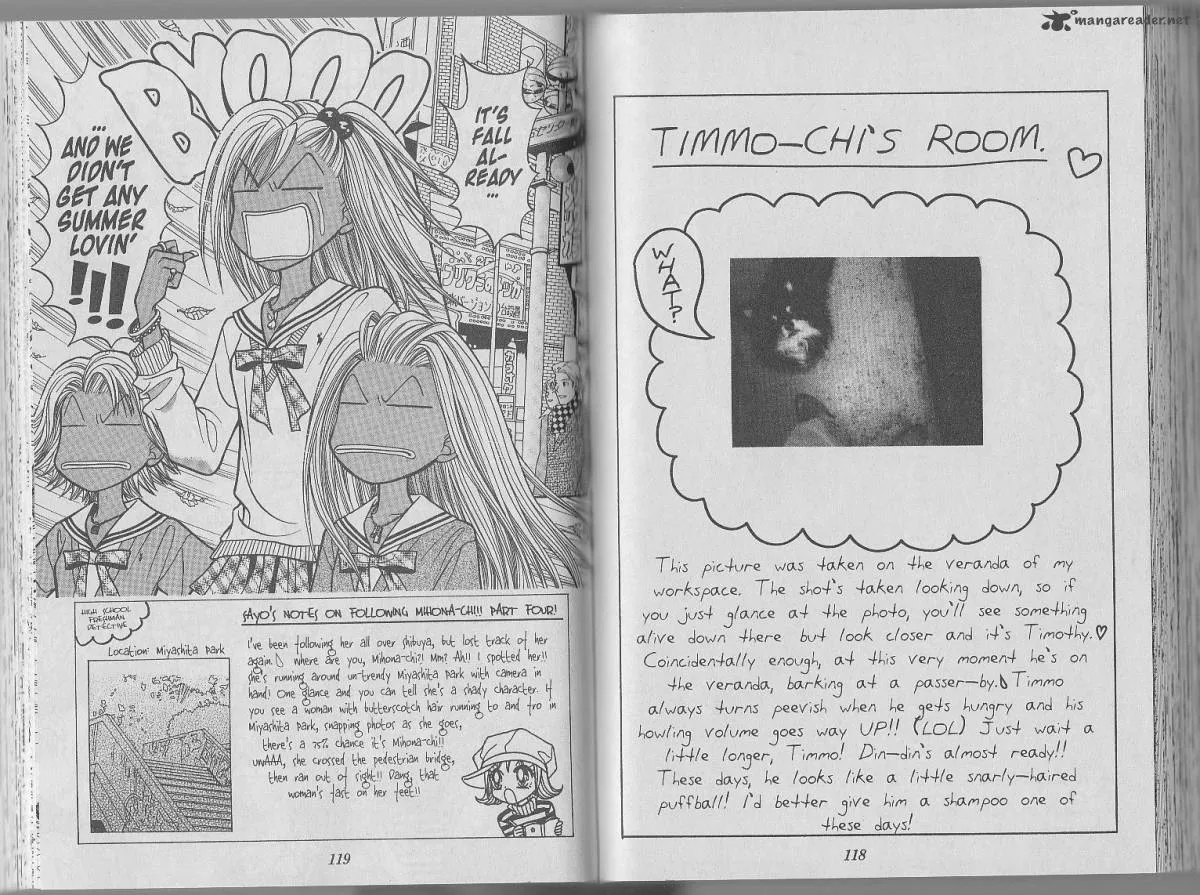 mangareader.net
TIMMO-CHI'S ROOM.
WHAT?
This picture was taken on the veranda of my
workspace. The shot's taken looking down, so if
you just glance at the photo, you'll see something
alive down there but look closer and it's Timothy.♥
Coincidentally enough, at this very moment he's on
the veranda, barking at a passer-by. Timmo
always turns peevish when he gets hungry and his
howling volume goes way UP!! (LOL) Just wait a
little longer, Timmo! Din-din's almost ready!!
These days, he looks like a little snarly-haired
puffball! I'd better give him a shampoo one of
these days!
118
BYOOO
IT'S
FALL
AL-
READY
...
...
AND WE
DIDN'T
GET ANY
SUMMER
LOVIN'
!!!
プリクラ
バージョン
HIGH SCHOOL
FRESHMAN
DETECTIVE
SAYO'S NOTES ON FOLLOWING MIHONA-CHI!! PART FOUR!
Location: Miyashita Park
I've been following her all over Shibuya, but lost track of her
again. Where are you, Mihona-chi?! Mm? Ah!! I spotted her!!
She's running around un-trendy Miyashita Park with camera in
hand! One glance and you can tell she's a shady character. If
you see a woman with butterscotch hair running to and fro in
Miyashita Park, snapping photos as she goes,
there's a 75% chance it's Mihona-chi!!
UWAAA, she crossed the pedestrian bridge,
then ran out of sight!! Dang, that
woman's fast on her feet!!
119